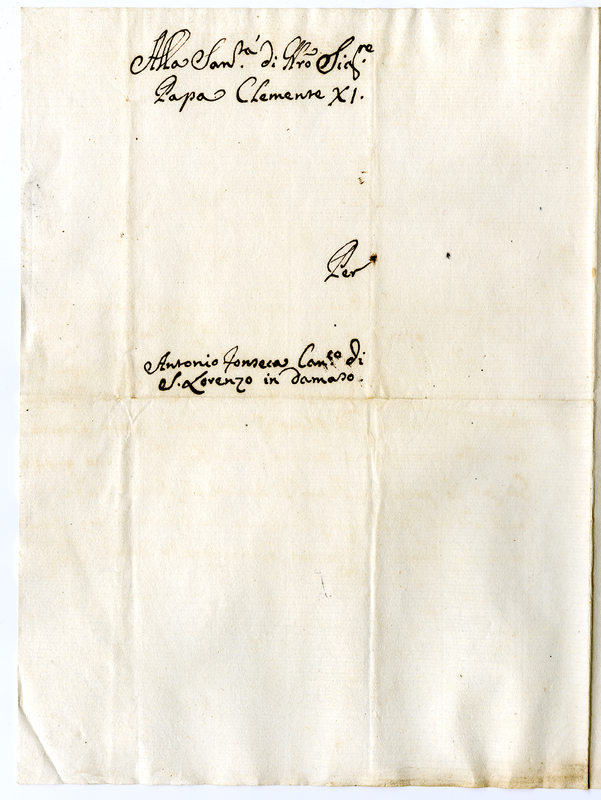 Alla San.tà di Nro Sig.re
Papa Clemente XI.
Per
Antonio Fonseca Can.co di
S. Lorenzo in Damaso.